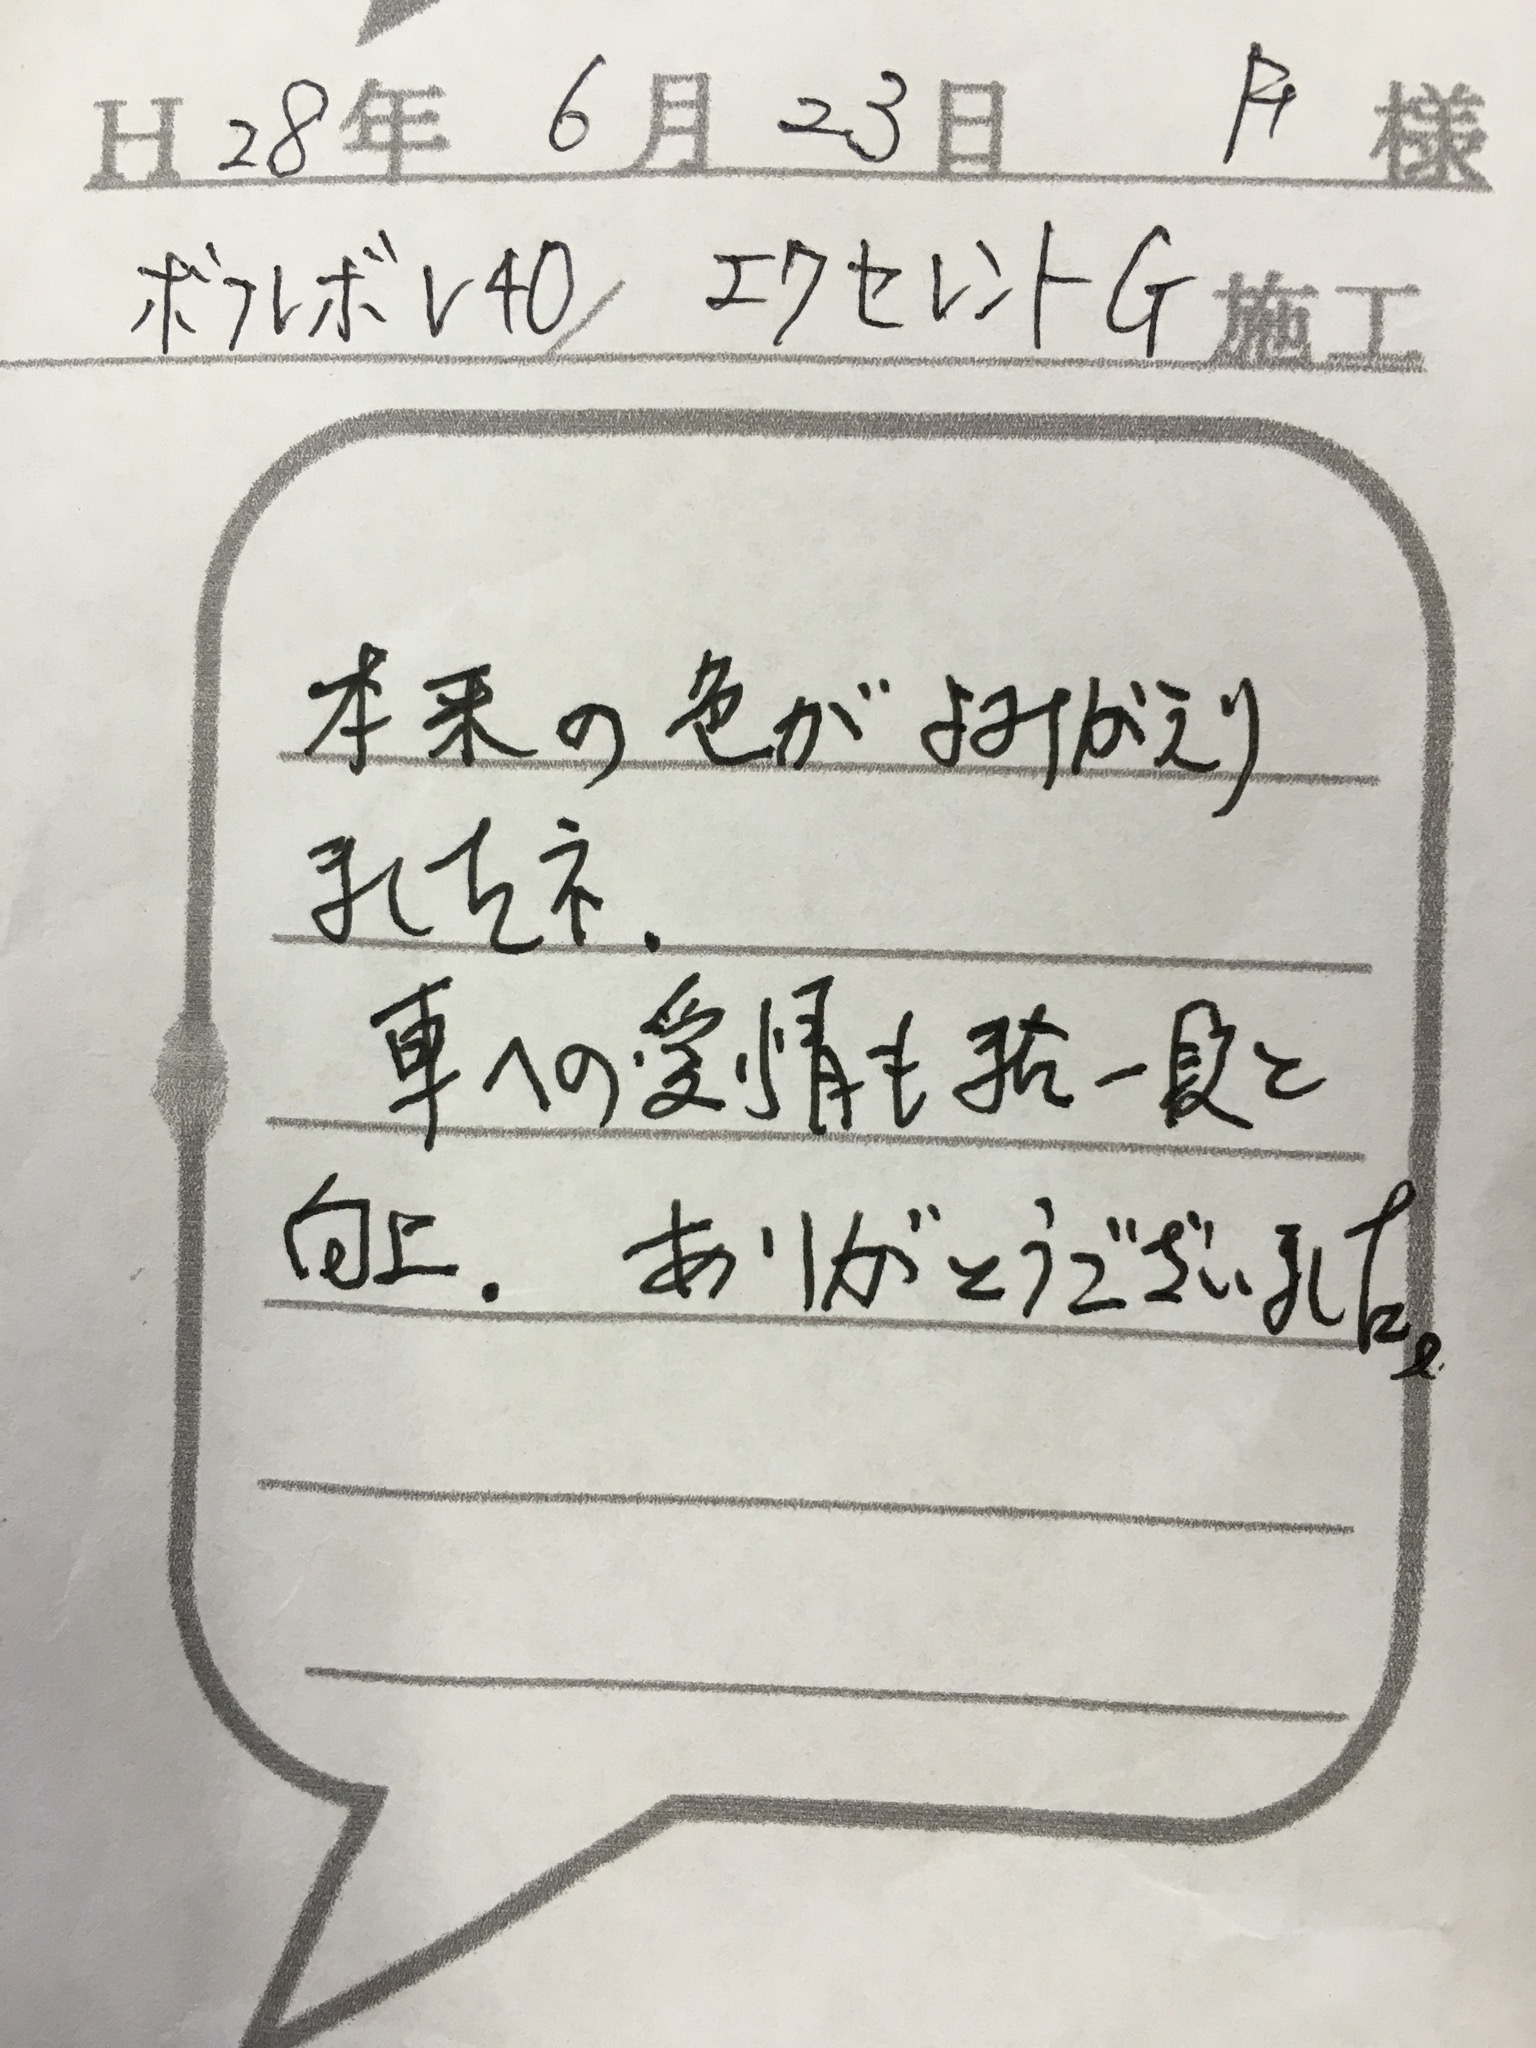 H28年 6月23日 様
ボルボV40/ エクセレントG施工
本来の色がよみがえり
ましたネ.
車への愛情もまた一段と
向上. ありがとうございました。